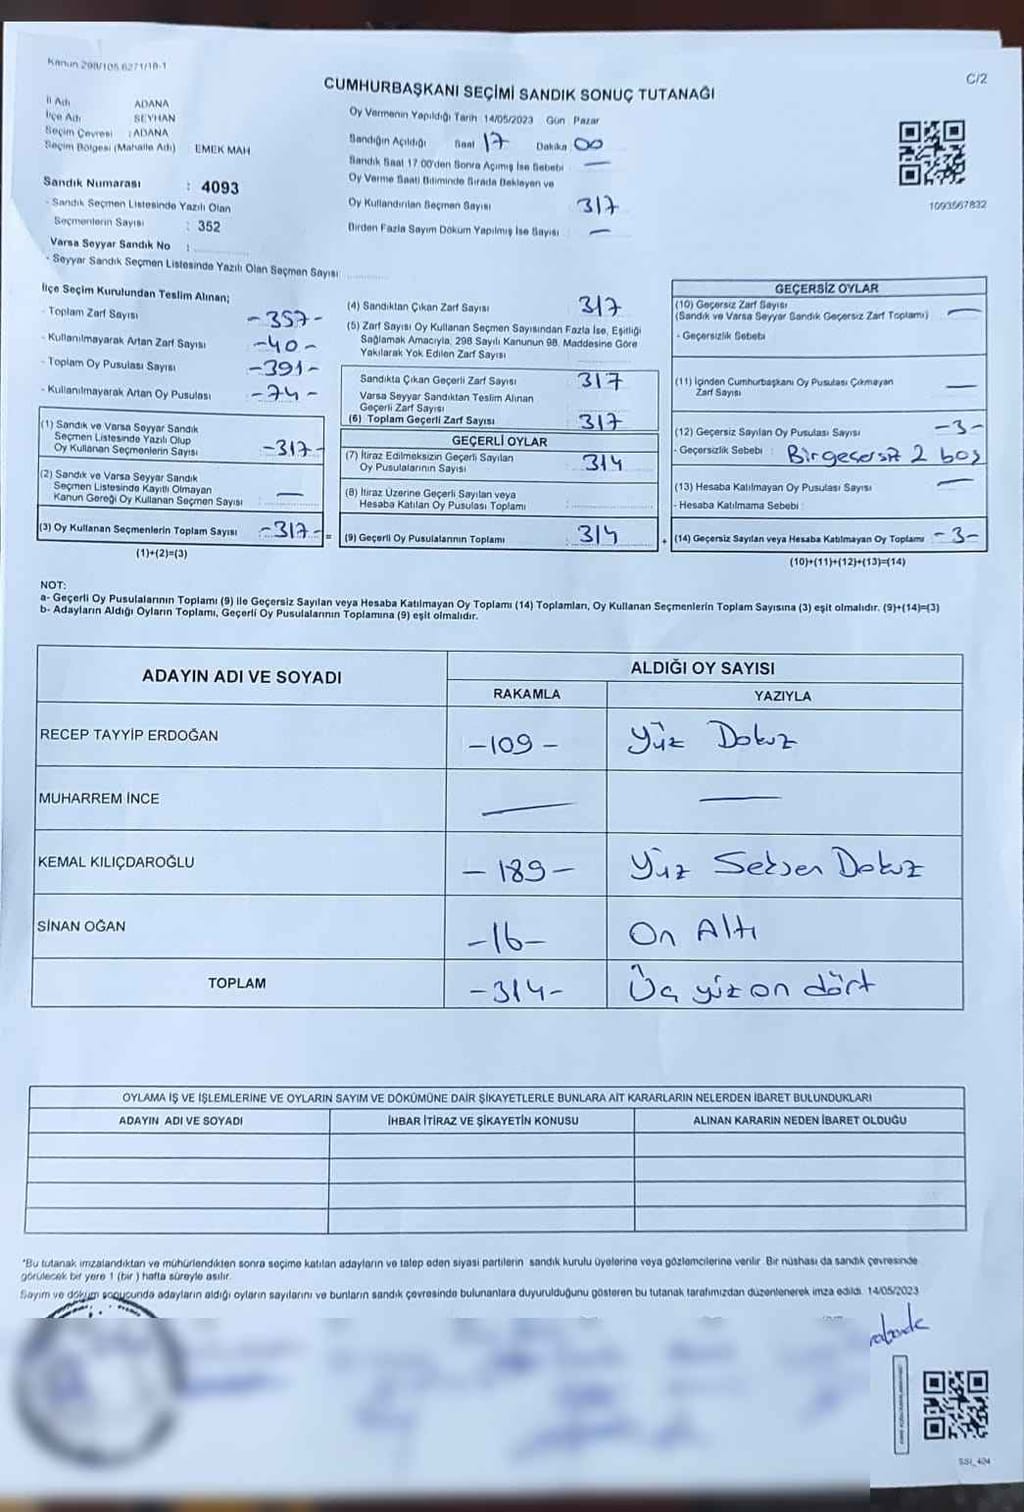 Kanun 298/105.6271/18-1
C/2
CUMHURBAŞKANI SEÇİMİ SANDIK SONUÇ TUTANAĞI
İl Adı ADANA
İlçe Adı SEYHAN
Seçim Çevresi : ADANA
Seçim Bölgesi (Mahalle Adı) EMEK MAH
Sandık Numarası : 4093
- Sandık Seçmen Listesinde Yazılı Olan
Seçmenlerin Sayısı : 352
Varsa Seyyar Sandık No :
- Seyyar Sandık Seçmen Listesinde Yazılı Olan Seçmen Sayısı
Oy Vermenin Yapıldığı Tarih 14/05/2023 Gün Pazar
Sandığın Açıldığı Saat 17 Dakika 00
Sandık Saat 17.00'den Sonra Açılmış İse Sebebi —
Oy Verme Saati Bitiminde Sırada Bekleyen ve
Oy Kullandırılan Seçmen Sayısı 317
Birden Fazla Sayım Döküm Yapılmış İse Sayısı —
1093567832
İlçe Seçim Kurulundan Teslim Alınan;
- Toplam Zarf Sayısı -357-
- Kullanılmayarak Artan Zarf Sayısı -40-
- Toplam Oy Pusulası Sayısı -391-
- Kullanılmayarak Artan Oy Pusulası -74-
(1) Sandık ve Varsa Seyyar Sandık
Seçmen Listesinde Yazılı Olup
Oy Kullanan Seçmenlerin Sayısı -317-
(2) Sandık ve Varsa Seyyar Sandık
Seçmen Listesinde Kayıtlı Olmayan
Kanun Gereği Oy Kullanan Seçmen Sayısı —
(3) Oy Kullanan Seçmenlerin Toplam Sayısı -317- =
(1)+(2)=(3)
(4) Sandıktan Çıkan Zarf Sayısı 317
(5) Zarf Sayısı Oy Kullanan Seçmen Sayısından Fazla İse, Eşitliği
Sağlamak Amacıyla, 298 Sayılı Kanunun 98. Maddesine Göre
Yakılarak Yok Edilen Zarf Sayısı
Sandıkta Çıkan Geçerli Zarf Sayısı 317
Varsa Seyyar Sandıktan Teslim Alınan
Geçerli Zarf Sayısı
(6) Toplam Geçerli Zarf Sayısı 317
GEÇERLİ OYLAR
(7) İtiraz Edilmeksizin Geçerli Sayılan
Oy Pusulalarının Sayısı 314
(8) İtiraz Üzerine Geçerli Sayılan veya
Hesaba Katılan Oy Pusulası Toplamı
(9) Geçerli Oy Pusulalarının Toplamı 314 +
GEÇERSİZ OYLAR
(10) Geçersiz Zarf Sayısı
(Sandık ve Varsa Seyyar Sandık Geçersiz Zarf Toplamı) —
- Geçersizlik Sebebi
(11) İçinden Cumhurbaşkanı Oy Pusulası Çıkmayan
Zarf Sayısı —
(12) Geçersiz Sayılan Oy Pusulası Sayısı -3-
- Geçersizlik Sebebi : Bir geçersiz 2 boş
(13) Hesaba Katılmayan Oy Pusulası Sayısı —
- Hesaba Katılmama Sebebi
(14) Geçersiz Sayılan veya Hesaba Katılmayan Oy Toplamı -3-
(10)+(11)+(12)+(13)=(14)
NOT:
a- Geçerli Oy Pusulalarının Toplamı (9) ile Geçersiz Sayılan veya Hesaba Katılmayan Oy Toplamı (14) Toplamları, Oy Kullanan Seçmenlerin Toplam Sayısına (3) eşit olmalıdır. (9)+(14)=(3)
b- Adayların Aldığı Oyların Toplamı, Geçerli Oy Pusulalarının Toplamına (9) eşit olmalıdır.
ADAYIN ADI VE SOYADI ALDIĞI OY SAYISI
RAKAMLA YAZIYLA
RECEP TAYYİP ERDOĞAN -109- Yüz Dokuz
MUHARREM İNCE — —
KEMAL KILIÇDAROĞLU -189- Yüz Seksen Dokuz
SİNAN OĞAN -16- On Altı
TOPLAM -314- Üç yüz on dört
OYLAMA İŞ VE İŞLEMLERİNE VE OYLARIN SAYIM VE DÖKÜMÜNE DAİR ŞİKAYETLERLE BUNLARA AİT KARARLARIN NELERDEN İBARET BULUNDUKLARI
ADAYIN ADI VE SOYADI İHBAR İTİRAZ VE ŞİKAYETİN KONUSU ALINAN KARARIN NEDEN İBARET OLDUĞU
*Bu tutanak imzalandıktan ve mühürlendikten sonra seçime katılan adayların ve talep eden siyasi partilerin sandık kurulu üyelerine veya gözlemcilerine verilir. Bir nüshası da sandık çevresinde
görülecek bir yere 1 (bir ) hafta süreyle asılır.
Sayım ve döküm sonucunda adayların aldığı oyların sayılarını ve bunların sandık çevresinde bulunanlara duyurulduğunu gösteren bu tutanak tarafımızdan düzenlenerek imza edildi. 14/05/2023